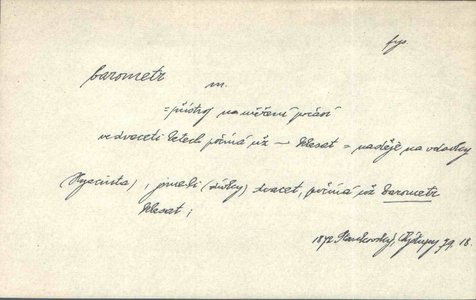 fys.
barometr m.
= přístroj na měření počasí
ve dvaceti letech počíná už — klesat = naděje na vdavky
(Hyacinta), jmeli (dívky) dvacet, počíná už barometr
klesat;
1872 Stankovský, 79, 18.